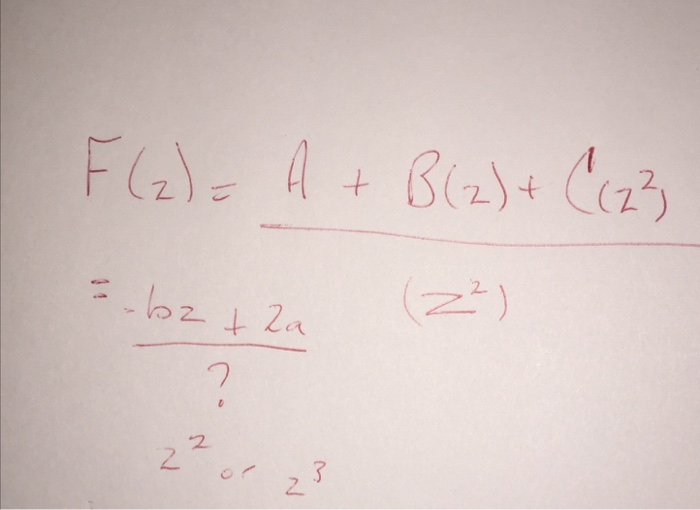 F(z) = A + B(z) + C(z²)
(z²)
= -bz + 2a
?
z² or z³